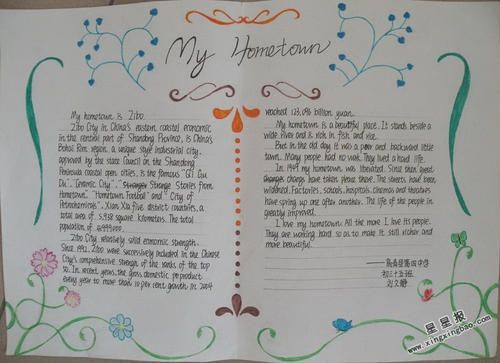 My Hometown
My hometown is Zibo.
Zibo City in China's eastern coastal economic
in the central part of Shandong Province, is China's
Bohai Rim region a unique style industrial city.
approved by the state Council on the Shandong
Peninsula coastal open cities, is the famous "Qi Gu
Du". "Ceramic City". Strange Stories from
Hometown". "Hometown Football" and "City of
Petrochemicals". Xian Xia five district countries, a
total area of 5,938 square kilometers. The total
population of
Zibo City relatively solid economic strength.
Since 1992. Zibo were successively included in the Chinese
City's comprehensive strength of the ranks of the top
50. In recent years, the gross domestic product
every year to more than 10 per cent growth in 2004
reached 123,096 billion yuan.
My hometown is a beautiful place. It stands beside a
wide river and is rich in fish and rice.
But in the old day it was a poor and backward little
town. Many people had no work. They lived a hard life.
In 1949 my hometown was liberated. Since then great
changes have taken place there. The streets have been
widened. Factories, schools, hospitals, cinemas and theatres
have spring up one after another. The life of the people is
greatly improved.
I love my hometown. All the more I love its people.
They are working hard so as to make it still richer and
more beautiful.
初三十五班
星星报
www.xingxingbao.com